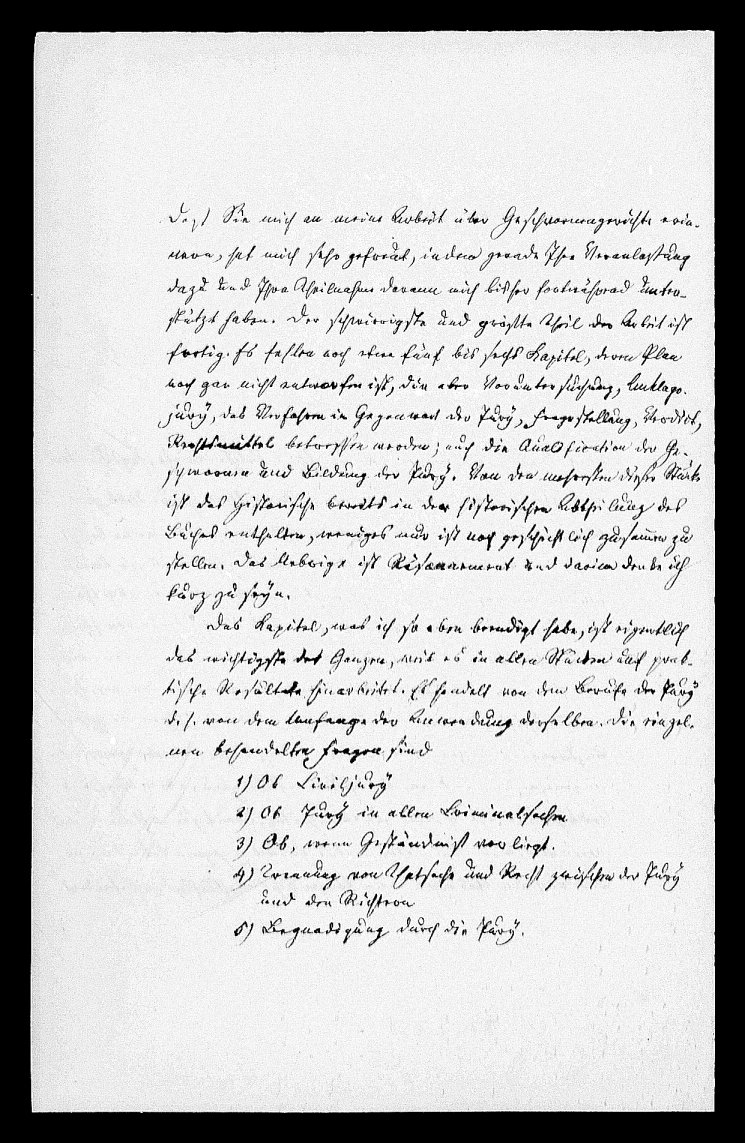 Daß Sie mich an meine Arbeit über Geschwornengerichte erin-
nern, hat mich sehr gefreut, indem gerade Ihre Veranlassung
dazu und Ihre Theilnahme daran mich bisher fortwährend unter-
stützt haben. Der schwierigste und größte Theil der Arbeit ist
fertig. Es fehlen noch etwa fünf bis sechs Kapitel, deren Plan
noch gar nicht entworfen ist, die aber Voruntersuchung, Anklage-
jury, das Verfahren in Gegenwart der Jury, Fragestellung, Verdict,
Rechtsmittel betreffen werden; auch die Qualification der Ge-
schwornen und Bildung der Jury. Von den mehrsten dieser Stücke
ist das Historische bereits in der historischen Abtheilung des
Buches enthalten, weniges nur ist noch geschichtlich zusammen zu
stellen. Das Uebrige ist Räsonnement und darin denke ich
kurz zu seyn.
Das Kapitel, was ich so eben beendigt habe, ist eigentlich
das wichtigste des Ganzen, weil es in allen Stücken auf prak-
tische Resultate hinarbeitet. Es handelt von dem Berufe der Jury
d. h. von dem Umfange der Anwendung derselben. Die einzel-
nen behandelten Fragen sind
1) Ob Civiljury
2) Ob Jury in allen Criminalsachen
3) Ob, wenn Geständnist vorliegt.
4) Trennung von Thatsache und Recht zwischen der Jury
und den Richtern
5) Begnadigung durch die Jury.